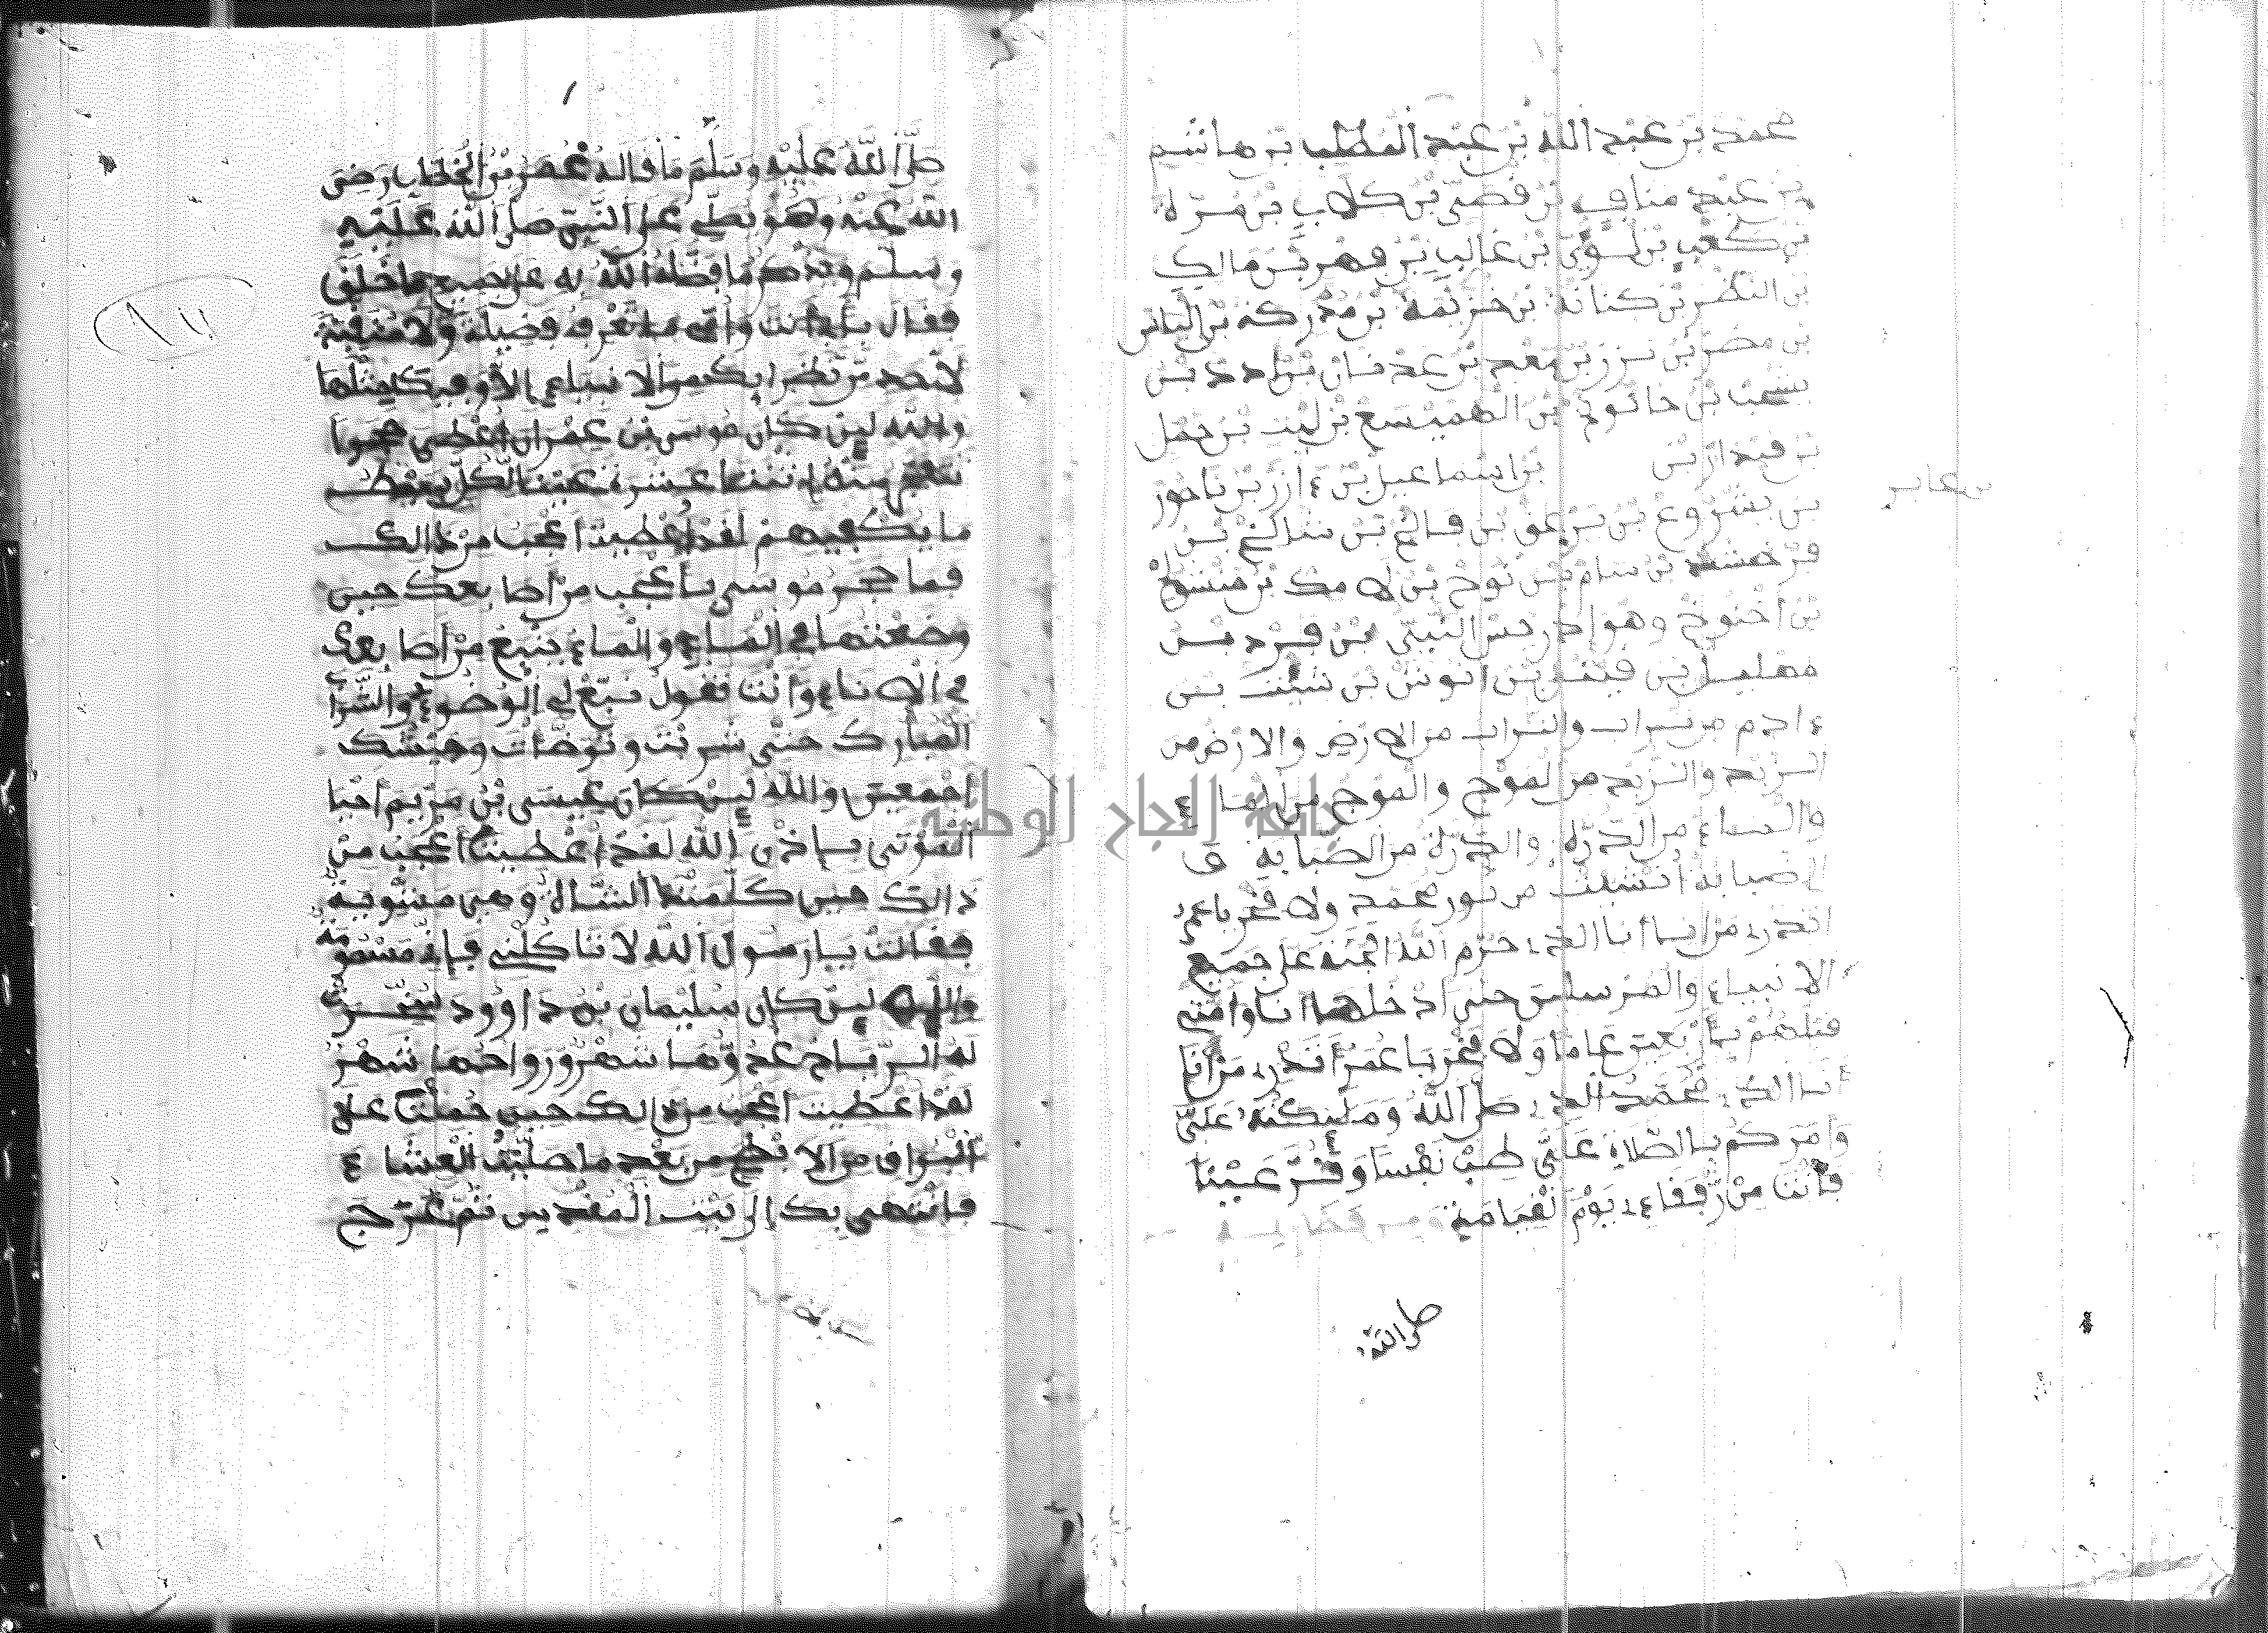 محمد بن عبد الله بن عبد المطلب بن هاشم
بن عبد مناف بن قصي بن كلاب بن مرة
بن كعب بن لؤي بن غالب بن فهر بن مالك
بن النضر بن كنانة بن خزيمة بن مدركة بن الياس
بن مضر بن نزر بن معد بن عدنان بن ادد بن
يشجب بن حانوخ بن الهميسع بن ليث بن حمل
بن قيدار بن بن اسماعيل بن ءازر بن ناحور
بن عابر
بن يشروع بن يرعو بن فالغ بن شالخ بن
فرخمشد بن سام بن نوح بن لامك بن متشوخ
بن اخنوخ وهو إدريس النبي بن يرد بن
مهليل بن قينن بن انوش بن شيث بن
ءادم من تراب والتراب من الارض والارض من
الزبد والزبد من الموج والموج من الماء
والماء من الدرة والدرة من الضبابة و
الضبابة أنشيت من نور محمد ولا فخر يا عمر
اتدرء من انا أنا الذء حرم الله الجنة على جميع
الانبياء والمرسلين حتى ادخلها انا وامتي
قبلهم بأربعين عاما ولا فخر يا عمر أتدرء من أنا
أنا الذء محمد الذء صلى الله وملئكته علي
وامركم بالصلاة علي طب نفسا وقر عينا
فأنت من رفقاءء يوم القيامة ومن فضايله
صلى الله
صلى الله عليه وسلم ما قاله عمر بن الخطاب رضي
الله عنه وهو يصلي على النبي صلى الله عليه
وسلم ويذكر ما فضله الله به على جميع ما خلق
فقال بأبي أنت وأمي ما نعرف فضيلة ولا منقبة
لأحد من نظرايك من الانبياء الا وفيك مثلها
والله لين كان موسى بن عمران أعطي حجرا
تنفجر منه اثنتا عشرة عينا لكل بطن
ما يكفيهم لقد أعطيت أعجب من ذالك
فما حجر موسى بأعجب من أصابعك حين
وضعتها في الماء والماء ينبع من أصابعك
في الاناء وانت تقول نبغ لي الوضوء والشرا
المبارك حتى شربت وتوضأت وجيشك
اجمعين والله لين كان عيسى بن مريم أحيا
الموتى بإذن الله لقد أعطيت أعجب من
ذالك حين كلمتك الشاة وهي مشوية
فقالت يا رسول الله لا تاكلني فإني مسمومة
والله لين كان سليمان بن داوود سخرت
له الرياح غدوها شهر ورواحها شهر
لقد أعطيت أعجب من ذالك حين حملت على
البراق من الابطح من بعد ما صليت العشاء
فانتهى بك الى بيت المقديس ثم عرج